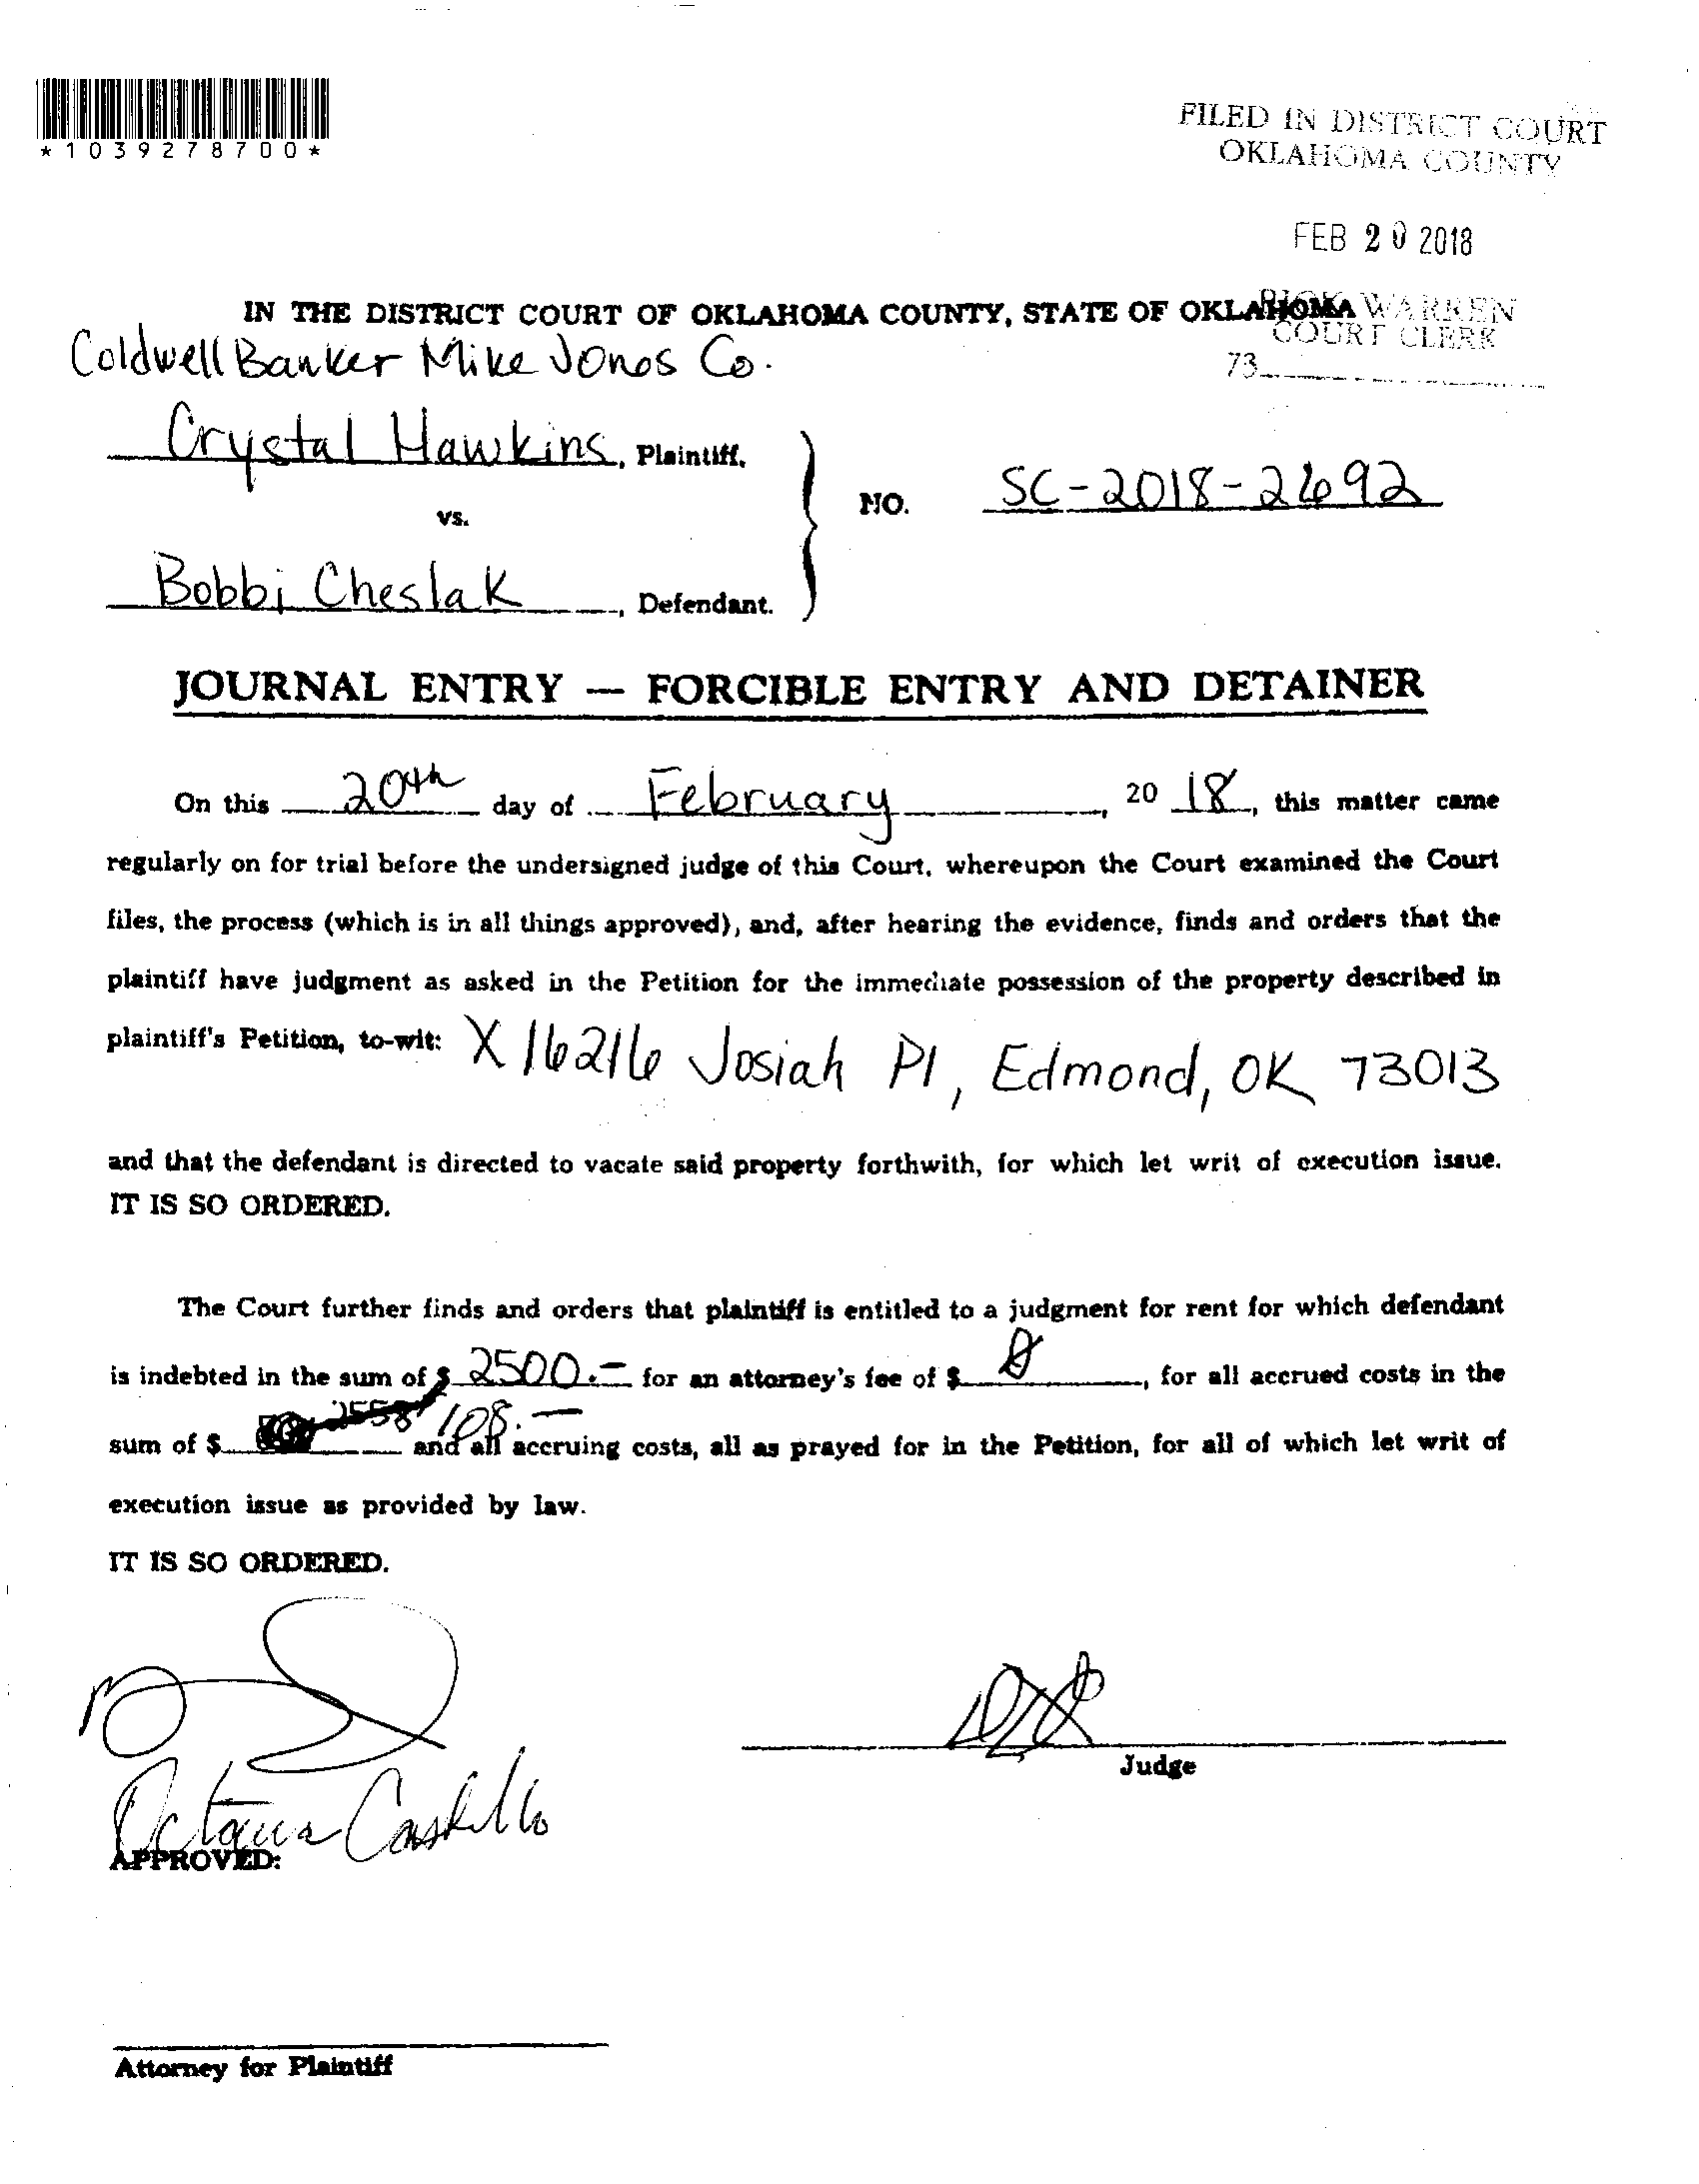 *1039278700*
FILED IN DISTRICT COURT
OKLAHOMA COUNTY
FEB 20 2018
RICK WARREN
COURT CLERK
73
IN THE DISTRICT COURT OF OKLAHOMA COUNTY, STATE OF OKLAHOMA
Coldwell Banker Mike Jones Co.
Crystal Hawkins, Plaintiff,
vs.
NO. SC-2018-2692
Bobbi Cheslak, Defendant.
JOURNAL ENTRY — FORCIBLE ENTRY AND DETAINER
On this 20th day of February, 20 18, this matter came
regularly on for trial before the undersigned judge of this Court, whereupon the Court examined the Court
files, the process (which is in all things approved), and, after hearing the evidence, finds and orders that the
plaintiff have judgment as asked in the Petition for the immediate possession of the property described in
plaintiff's Petition, to-wit: X 16216 Josiah Pl, Edmond, OK 73013
and that the defendant is directed to vacate said property forthwith, for which let writ of execution issue.
IT IS SO ORDERED.
The Court further finds and orders that plaintiff is entitled to a judgment for rent for which defendant
is indebted in the sum of $ 2500.— for an attorney's fee of $ 0, for all accrued costs in the
sum of $ 108.— and all accruing costs, all as prayed for in the Petition, for all of which let writ of
execution issue as provided by law.
IT IS SO ORDERED.
Judge
Octavia Castillo
APPROVED:
Attorney for Plaintiff